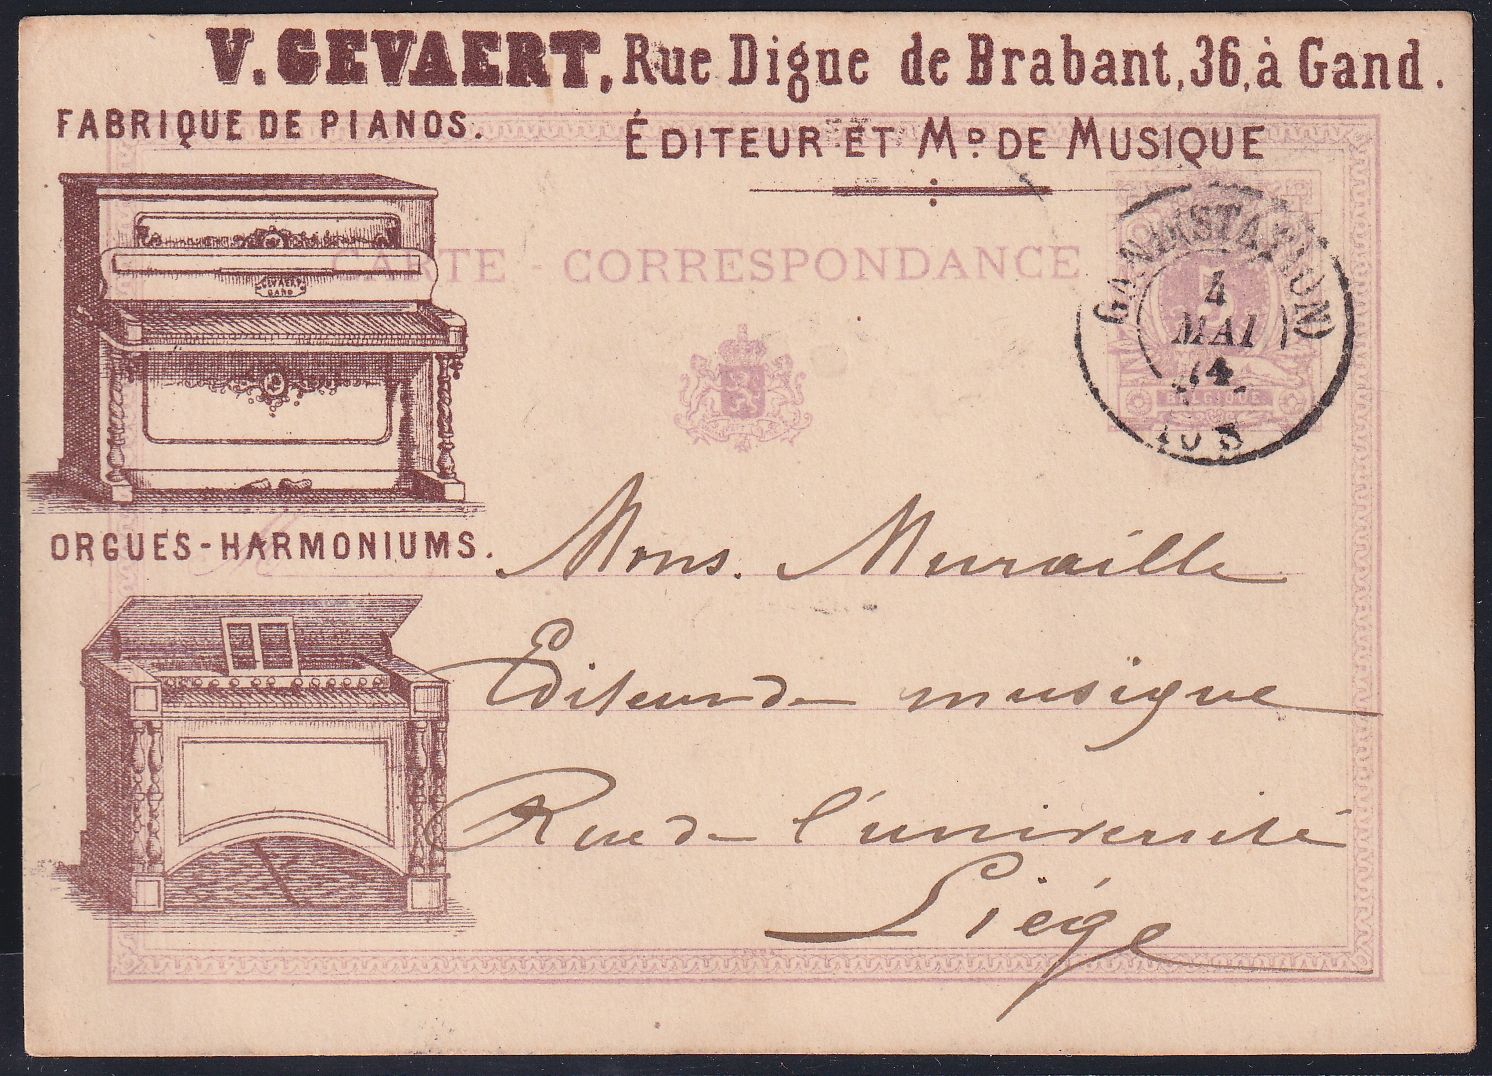 V. GEVAERT, Rue Digue de Brabant, 36, à Gand.
FABRIQUE DE PIANOS.
ÉDITEUR ET MD. DE MUSIQUE
CARTE-CORRESPONDANCE
GAND (STATION)
4
MAI
74
5
BELGIQUE
GEVAERT
GAND
ORGUES-HARMONIUMS.
M Mons. Muraille
Editeur de musique
Rue de l'université
Liége